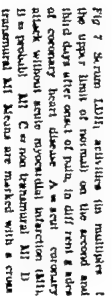 Fig 7 Serum LDH activities (in multiples of
the upper limit of normal) on the second and
third days after onset of pain, in different grades
of coronary heart disease A = acute coronary
attack without acute myocardial infarction (MI),
B = probable MI C = non transmural MI D
transmural MI Means are marked with a cross